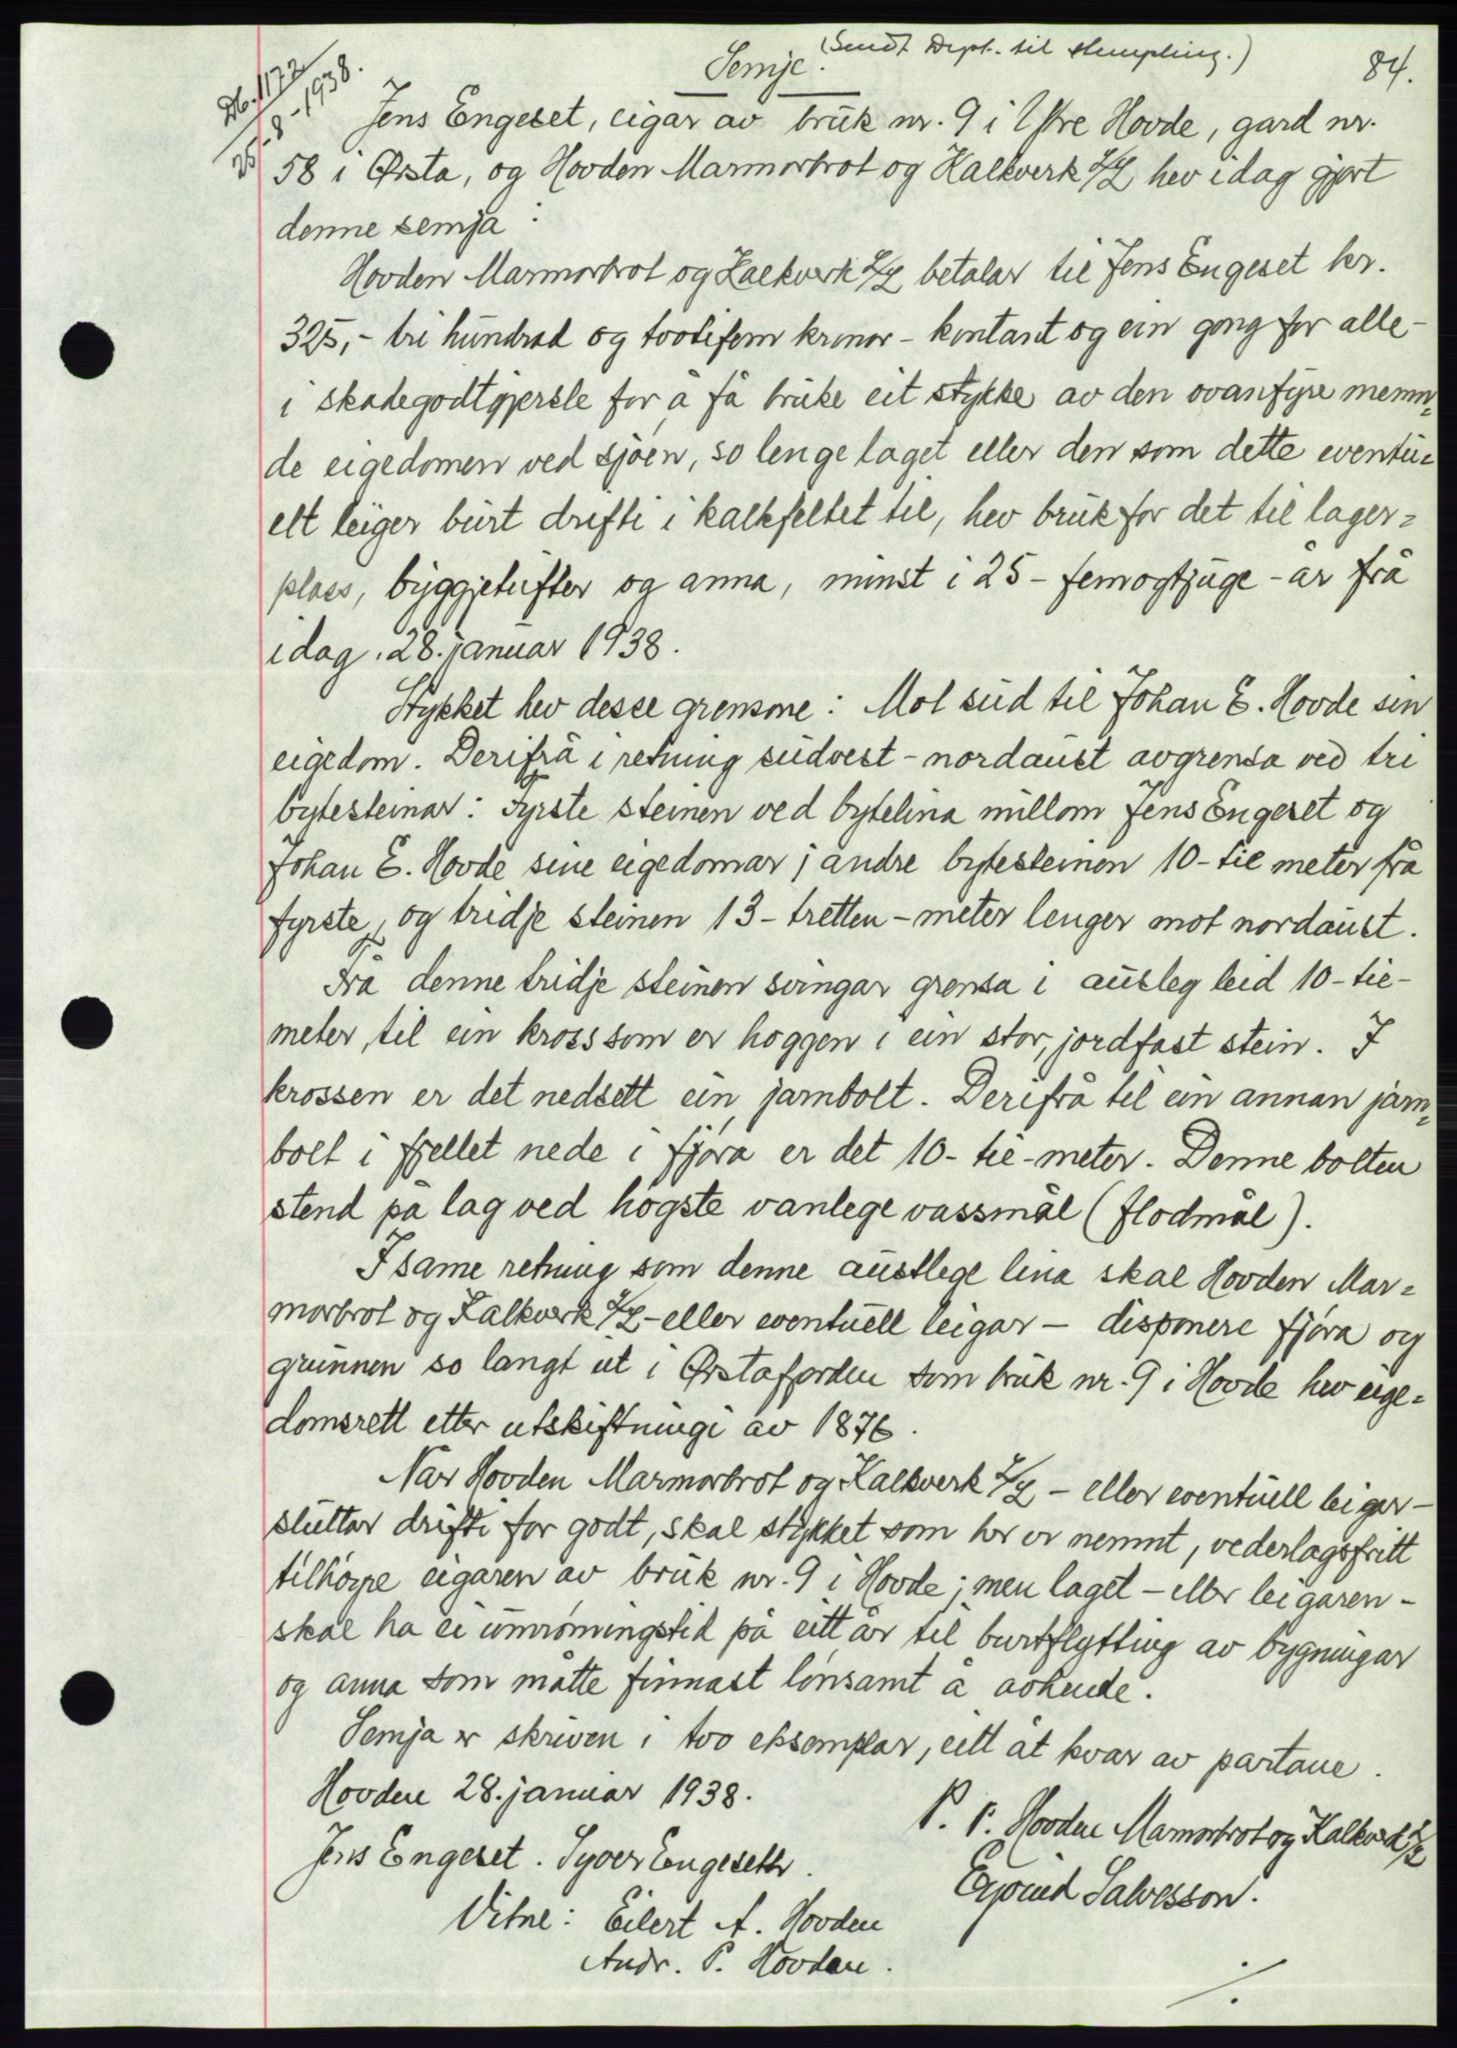 (Sendt Dept. til stempling.)
Semje.
84.
Db. 1172
25-8-1938.
Jens Engeset, eigar av bruk nr. 9 i Ytre Hovde, gard nr.
58 i Ørsta, og Hovden Marmorbrot og Kalkverk L/L hev idag gjort
denne semja:
Hovden Marmorbrot og Kalkverk L/L betalar til Jens Engeset kr.
325,- tri hundrad og tvotifem kronor - kontant og ein gong for alle -
i skadegodtgjersle for å få bruke eit stykke av den ovanfyre nemn=
de eigedomen ved sjøen, so lenge laget eller den som dette eventu=
elt leiger burt drifti i kalkfeltet til, hev bruk for det til lager=
plass, byggjetufter og anna, minst i 25 - femogtjuge - år frå
idag. 28. januar 1938.
Stykket hev desse grensone: Mot sud til Johan E. Hovde sin
eigedom. Derifrå i retning sudvest - nordaust avgrensa ved tri
bytesteinar: Fyrste steinen ved bytelina millom Jens Engeset og
Johan E. Hovde sine eigedomar; andre bytesteinen 10 - tie meter frå
fyrste, og tridje steinen 13 - tretten - meter lenger mot nordaust.
Frå denne tridje steinen svingar grensa i austleg leid 10 - tie -
meter, til ein kross som er hoggen i ein stor, jordfast stein. I
krossen er det nedsett ein jarnbolt. Derifrå til ein annan jarn=
bolt i fjellet nede i fjøra er det 10 - tie - meter. Denne bolten
stend på lag ved høgste vanlege vassmål (flodmål).
I same retning som denne austlege lina skal Hovden Mar=
morbrot og Kalkverk L/L - eller eventuell leigar - disponere fjøra og
grunnen so langt ut i Ørstafjorden som bruk nr. 9 i Hovde hev eige=
domsrett etter utskiftningi av 1876.
Når Hovden Marmorbrot og Kalkverk L/L - eller eventuell leigar -
sluttar drifti for godt, skal stykket som her er nemnt, vederlagsfritt
tilhøyre eigaren av bruk nr. 9 i Hovde; men laget - eller leigaren -
skal ha ei umrømingstid på eitt år til burtflytting av bygningar
og anna som måtte finnast lønsamt å avhende.
Semja er skriven i tvo eksemplar, eitt åt kvar av partane.
Hovden 28. januar 1938.
P. P. Hovden Marmorbrot og Kalkverk L/L
Jens Engeset. Syver Engeseth.
Eyvind Salvesson.
Vitne: Eilert A. Hovden
Andr. P. Hovden.